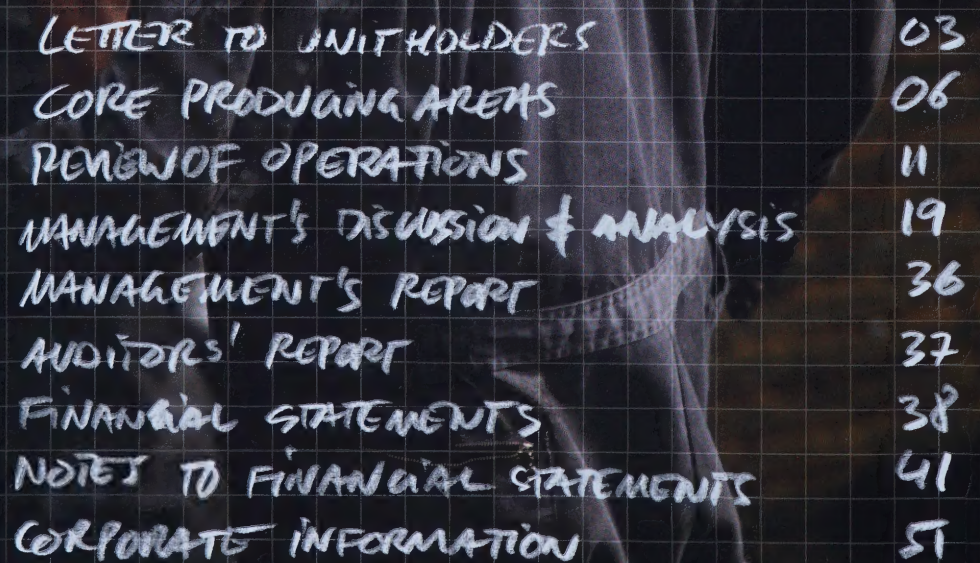 LETTER TO UNITHOLDERS 03
CORE PRODUCING AREAS 06
REVIEW OF OPERATIONS 11
MANAGEMENT'S DISCUSSION & ANALYSIS 19
MANAGEMENT'S REPORT 36
AUDITORS' REPORT 37
FINANCIAL STATEMENTS 38
NOTES TO FINANCIAL STATEMENTS 41
CORPORATE INFORMATION 51